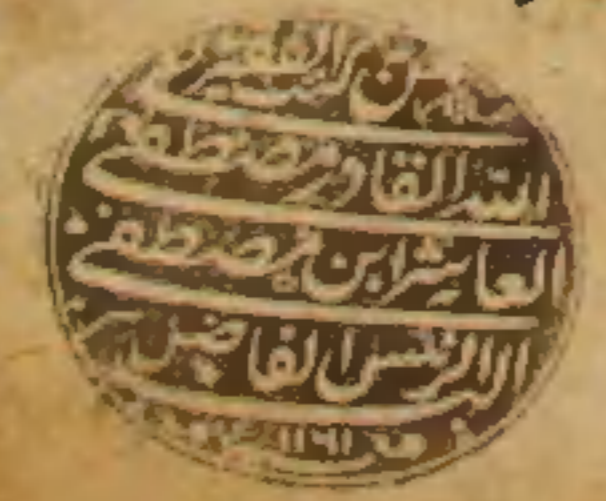 من كتب الفقير
الله القادر مصطفى
العاشر ابن مصطفى
الرئيس الفاضل
١١٦١